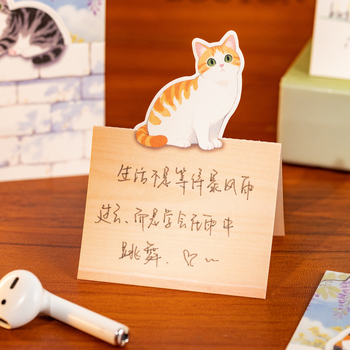 生活不是等待暴风雨
过去、而是学会在雨中
跳舞.♡~